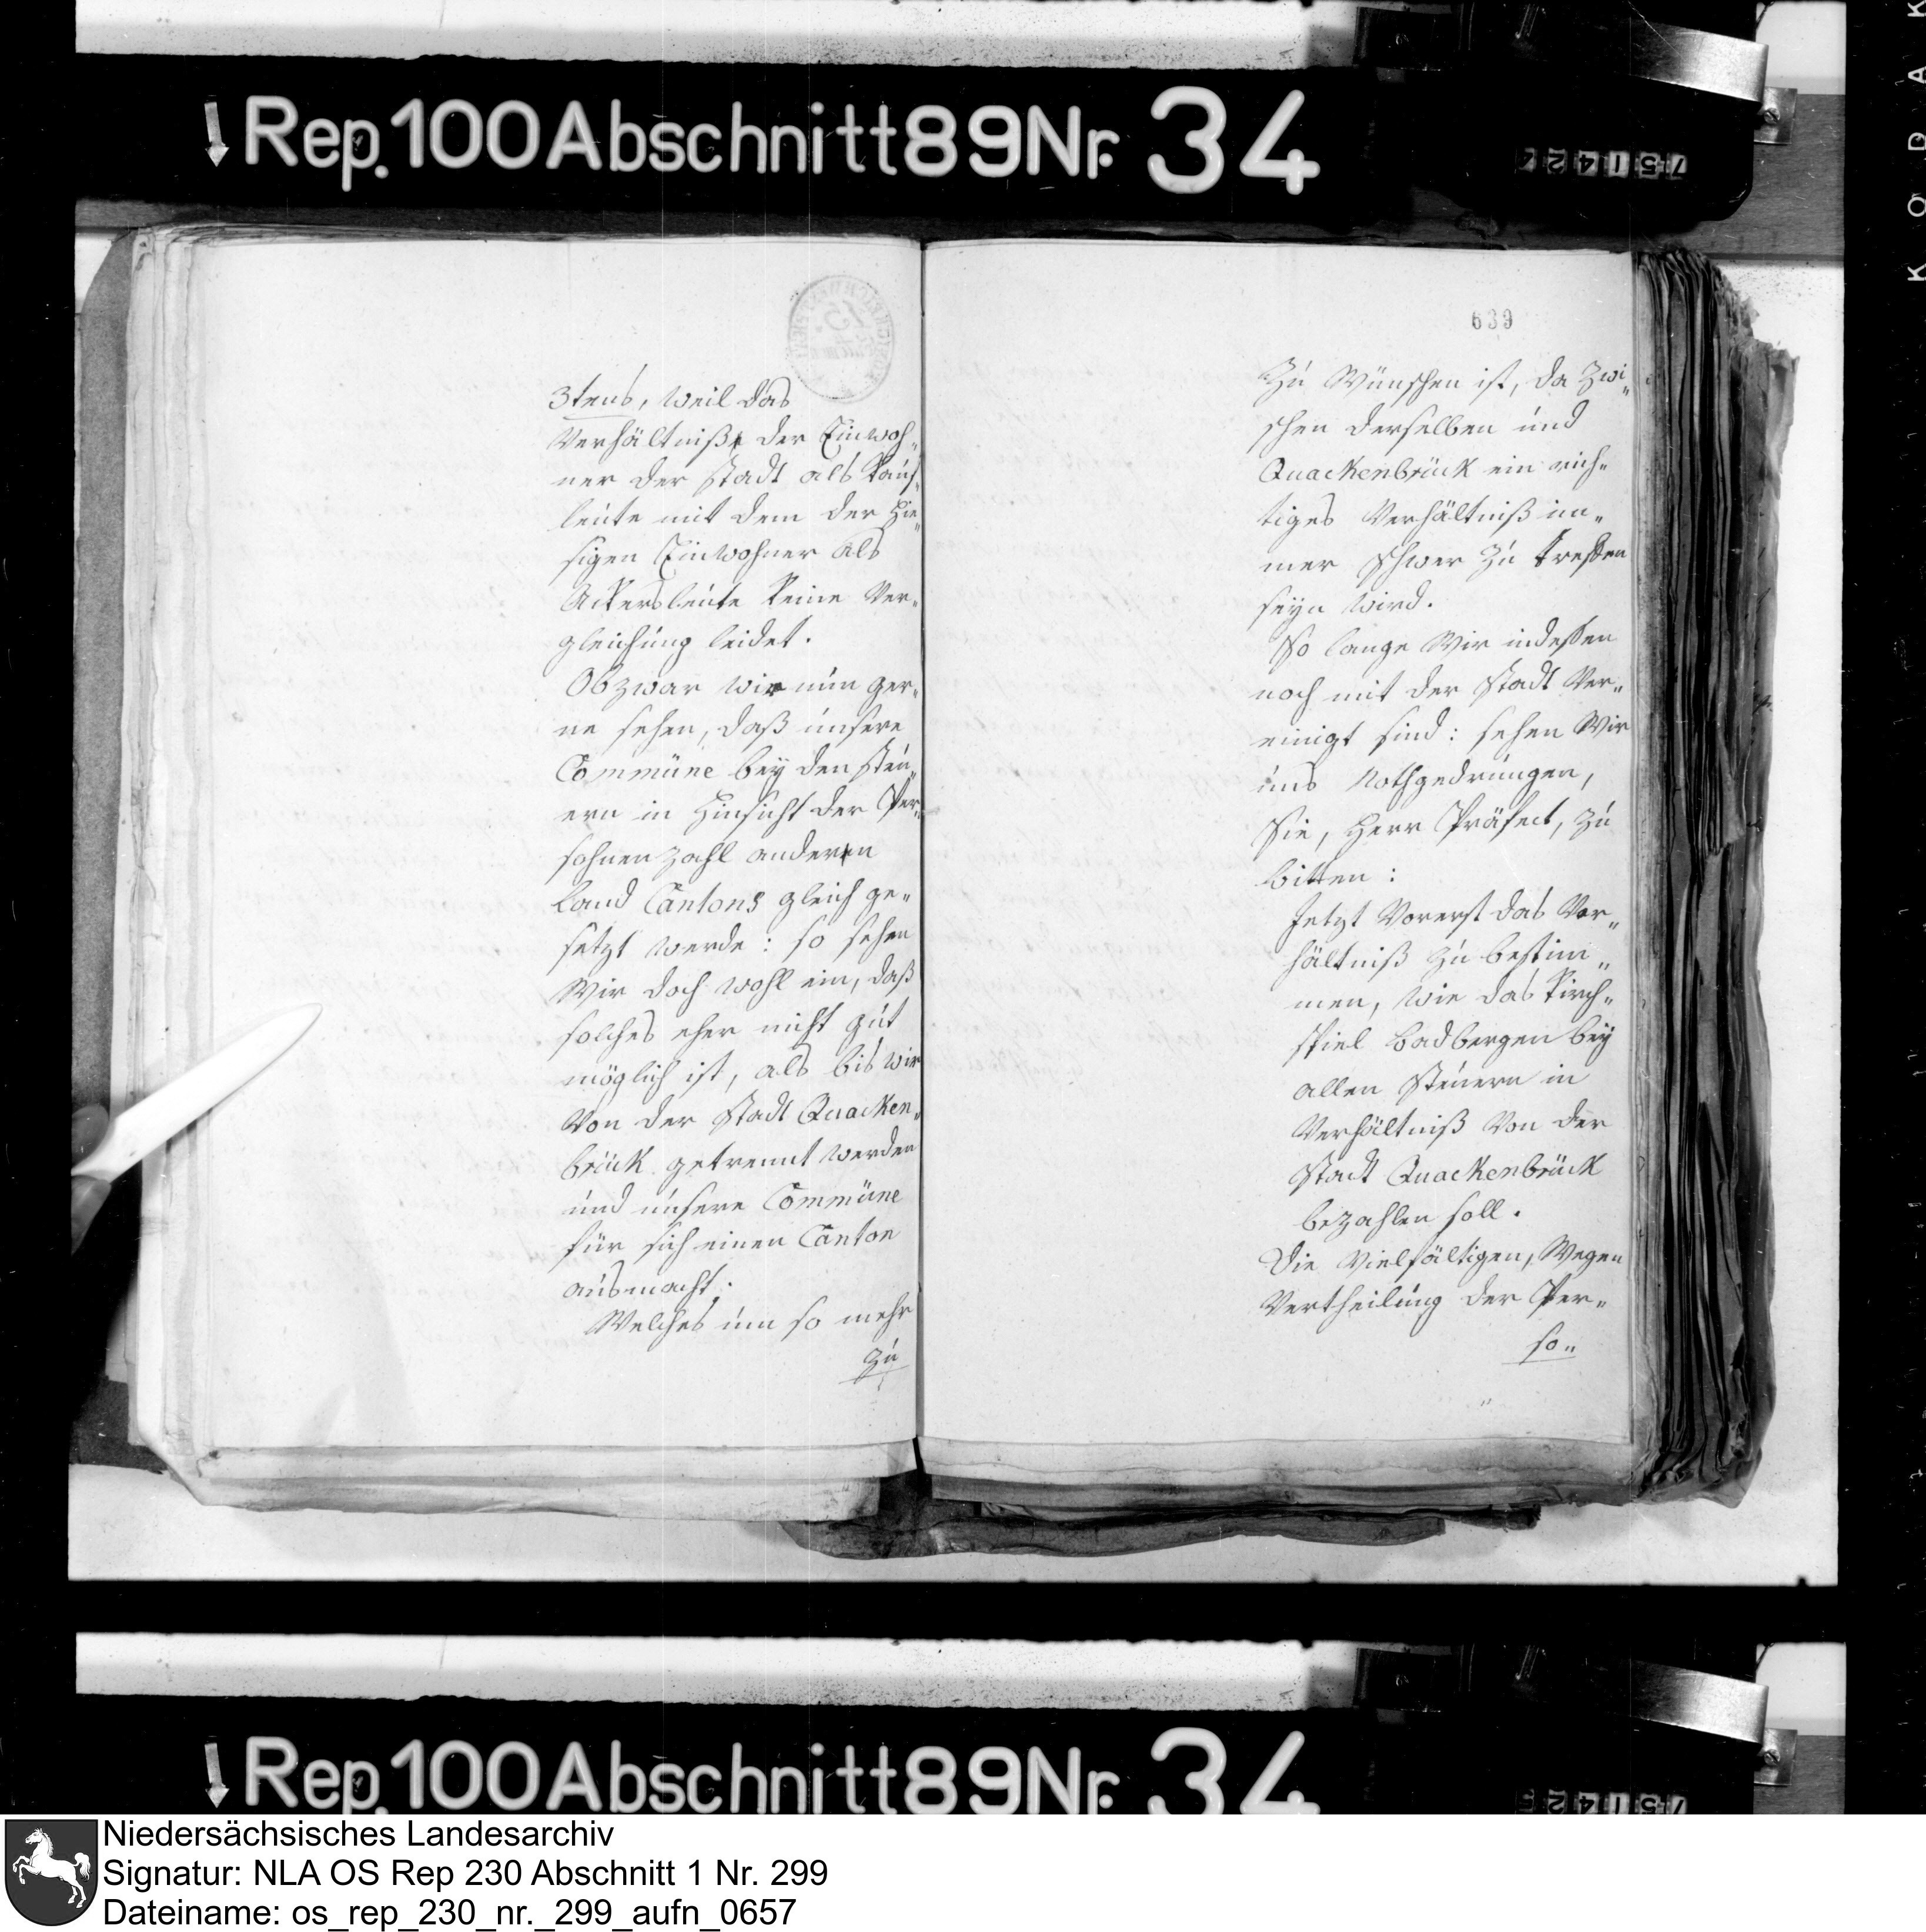 Rep. 100 Abschnitt 89 Nr. 34
751424
KODAK
15.
3tens, weil das
Verhältniß der Einwoh„
ner der Stadt als Kauf„
leute mit dem der hie„
sigen Einwohner als
Ackersleute keine Ver„
gleichung leidet.
Obzwar wir nun ger„
ne sehen, daß unsere
Commüne bey den Steu„
ern in Hinsicht der Per„
sohnenzahl anderen
Land Cantons gleich ge„
setzt werde: so sehen
Wir doch wohl ein, daß
solches eher nicht gut
möglich ist, als bis wir
von der Stadt Quacken„
brück getrennt werden
und unsere Commüne
für sich einen Canton
ausmacht.
Welches um so mehr
zu
639
Zu Wünschen ist, da Zwi„
schen derselben und
Quackenbrück ein rich„
tiges Verhältniß im„
mer schwer zu treffen
seyn wird.
So lange Wir indessen
noch mit der Stadt Ver„
einigt sind: sehen Wir
uns Nothgedrungen,
Sie, Herr Präfect, zu
bitten:
Jetzt Vorerst das Ver„
hältniß zu bestim„
men, wie das Kirch„
spiel Badbergen bey
allen Steuern in
Verhältniß von der
Stadt Quackenbrück
bezahlen soll.
Die Vielfältigen, Wegen
Vertheilung der Per„
so„
Rep. 100 Abschnitt 89 Nr. 34
Niedersächsisches Landesarchiv
Signatur: NLA OS Rep 230 Abschnitt 1 Nr. 299
Dateiname: os_rep_230_nr._299_aufn_0657